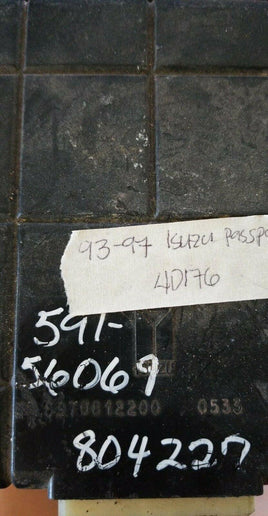 93-97 ISUZU PASSPO
4D176
591-
56069
8970612200 0533
804227